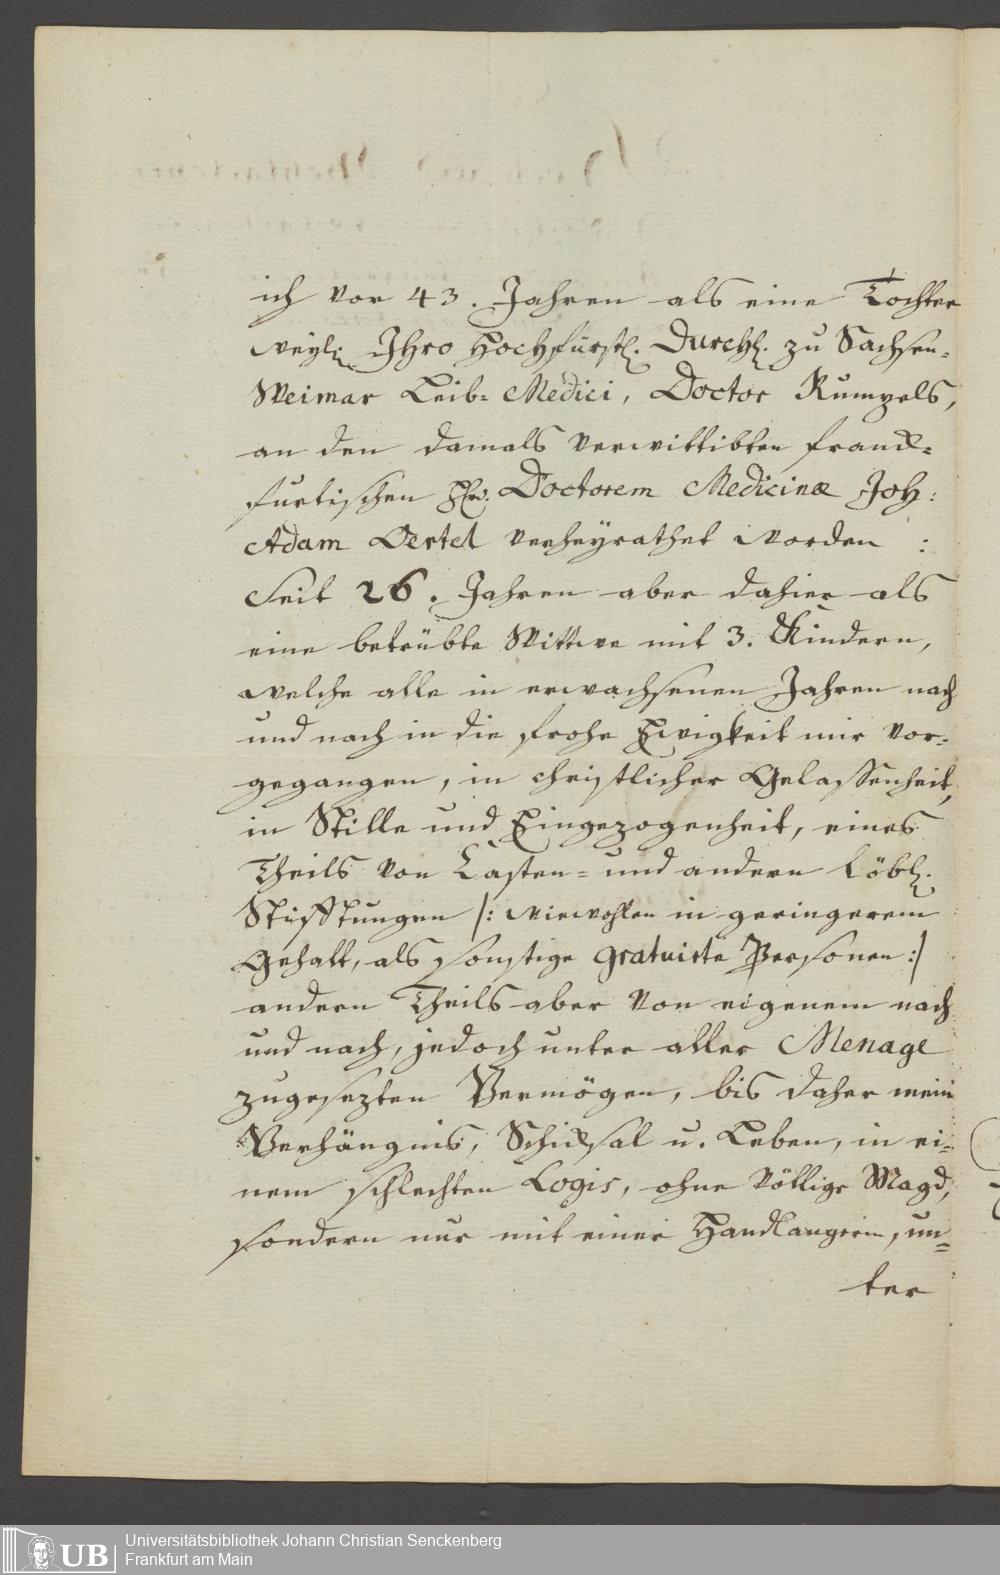 ich vor 43. Jahren als eine Tochter
weyl. Ihro Hochfürstl. Durchl. zu Sachsen-
Weimar Leib-Medici, Doctor Rumpels,
an den damals verwittibten franck-
furtischen Doctorem Medicinæ Joh:
Adam Oertel verheyrathet worden :
Seit 26. Jahren aber dahier als
eine betrübte Wittwe mit 3. Kindern,
welche alle in erwachsenen Jahren nach
und nach in die frohe Ewigkeit mir vor-
gegangen, in christlicher Gelassenheit,
in Stille und Eingezogenheit, eines
Theils von Casten- und andern löbl.
Stifftungen /: wiewohlen in geringerem
Gehalt, als sonstige gratuirte Personen :/
andern Theils aber von eigenem nach
und nach, jedoch unter aller Menage
zugesezten Vermögen, bis daher mein
Verhängnis, Schicksal u. Leben, in ei-
nem schlechten Logis, ohne völlige Magd,
sondern nur mit einer Handlangerin, un-
ter
UB
Universitätsbibliothek Johann Christian Senckenberg
Frankfurt am Main